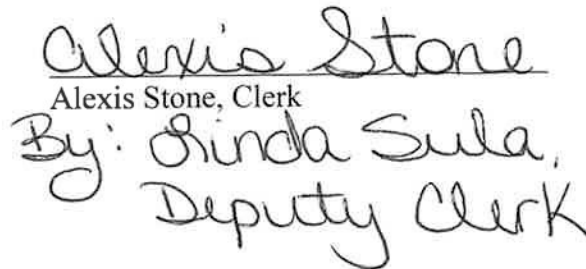 Alexis Stone
Alexis Stone, Clerk
By: Linda Sula,
Deputy Clerk